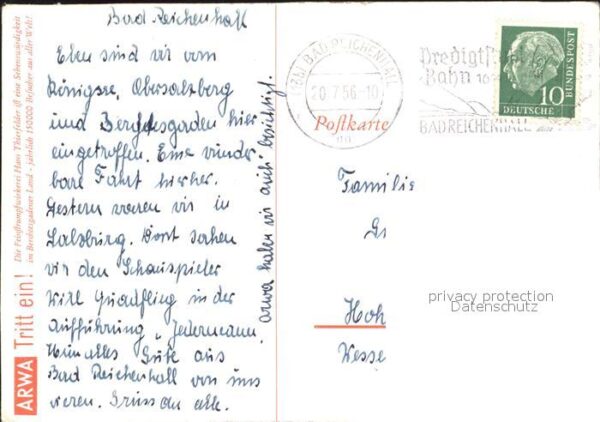 Bad Reichenhall
Eben sind wir vom
Königsee, Obersalzberg
und Berchtesgaden hier
eingetroffen. Eine wunder
bare Fahrt hierher.
Gestern waren wir in
Salzburg. Dort sahen
wir den Schauspieler
Will Quadflieg in der
Aufführung "Jedermann".
Nun alles Gute aus
Bad Reichenhall von uns
Grüssen alle.
Arwa haben wir auch besichtigt.
ARWA Tritt ein!
Die Feinstrumpfwirkerei Hans Thierfelder ist eine Sehenswürdigkeit
im Berchtesgadener Land - jährlich 150000 Besucher aus aller Welt!
BAD REICHENHALL
20.7.56-10
Postkarte
Predigtstuhl
Bahn
BAD REICHENHALL
DEUTSCHE
BUNDESPOST
10
Familie
Hoh
Wesse
privacy protection
Datenschutz